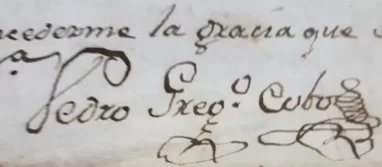 cederme la gracia que
Pedro Greg.º Cobo